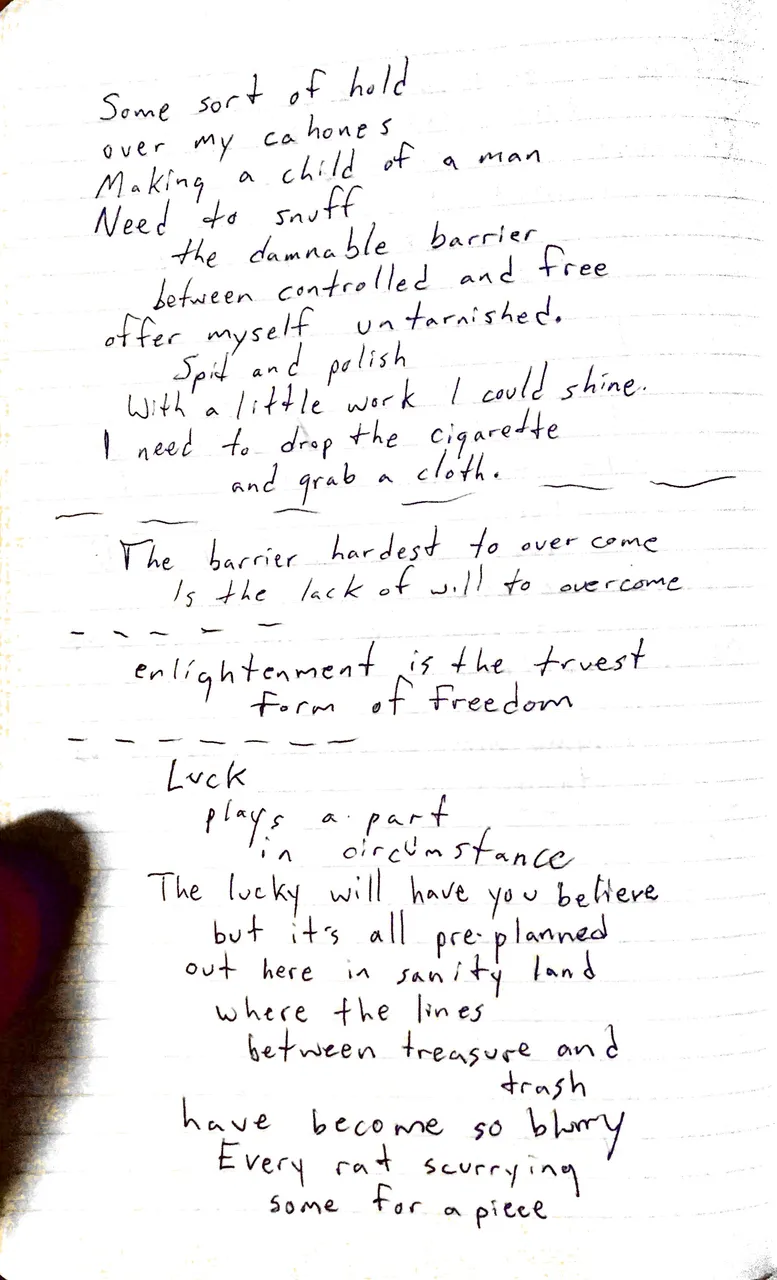 Some sort of hold
over my cahones
Making a child of a man
Need to snuff
the damnable barrier
between controlled and free
offer myself untarnished.
Spit and polish
With a little work I could shine.
I need to drop the cigarette
and grab a cloth.
The barrier hardest to over come
Is the lack of will to overcome
enlightenment is the truest
form of freedom
Luck
plays a part
in circumstance
The lucky will have you believe
but it's all pre-planned
out here in sanity land
where the lines
between treasure and
trash
have become so blurry
Every rat scurrying
some for a piece